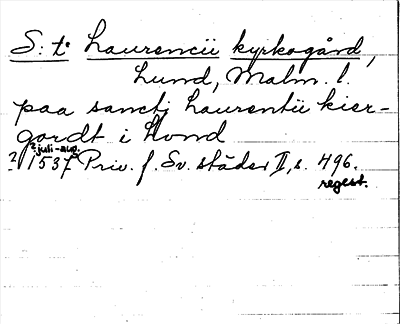 S:te Laurencii kyrkogård,
Lund, Malm. l.
paa sanctj Laurentii kier-
gordt i Lvond
? juli-aug.
? 1537 Priv. f. Sv. städer II, s. 496.
regest.